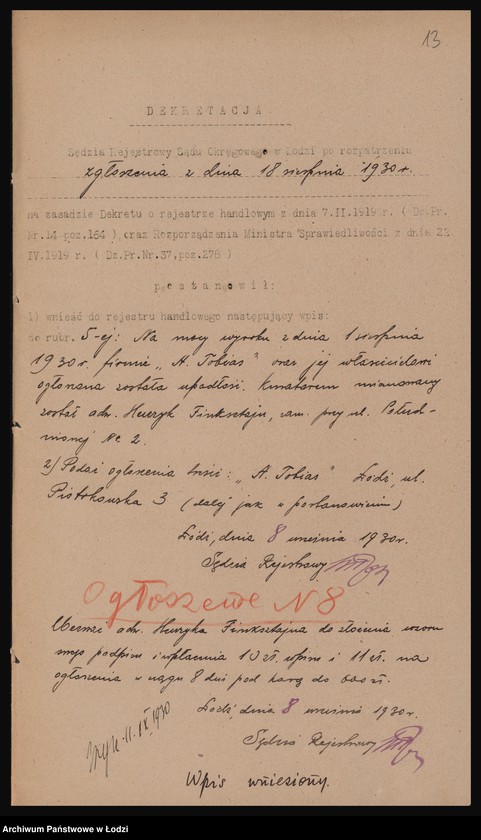 13
DEKRETACJA
Sędzia Rejestrowy Sądu Okręgowego w Łodzi po rozpatrzeniu
zgłoszenia z dnia 18 sierpnia 1930 r.
na zasadzie Dekretu o rejestrze handlowym z dnia 7.II.1919 r. ( Dz.Pr.
Nr.14 poz.164 ) oraz Rozporządzenia Ministra Sprawiedliwości z dnia 22
IV.1919 r. ( Dz.Pr.Nr.37,poz.278 )
postanowił:
1) wnieść do rejestru handlowego następujący wpis:
do rubr. 5-ej: Na mocy wyroku z dnia 1 sierpnia
1930 r. firmie „A. Tobias" oraz jej właścicielowi
ogłoszona została upadłość. Kuratorem mianowany
został adw. Henryk Finksztajn, zam. przy ul. Połud-
niowej Nr. 2.
2) Podać ogłoszenia treści: „A. Tobias" Łódź, ul.
Piotrkowska 3 (dalej jak w postanowieniu)
Łódź, dnia 8 września 1930 r.
Sędzia Rejestrowy
Ogłoszenie N 8
Wezwać adw. Henryka Finksztajna do złożenia wzoru
swego podpisu i wpłacenia 10 zł. wpisu i 11 zł. na
ogłoszenia w ciągu 8 dni pod karą do zł.
Łódź, dnia 8 września 1930 r.
Sędzia Rejestrowy
11.IX.1930
Wpis wniesiony.
Archiwum Państwowe w Łodzi